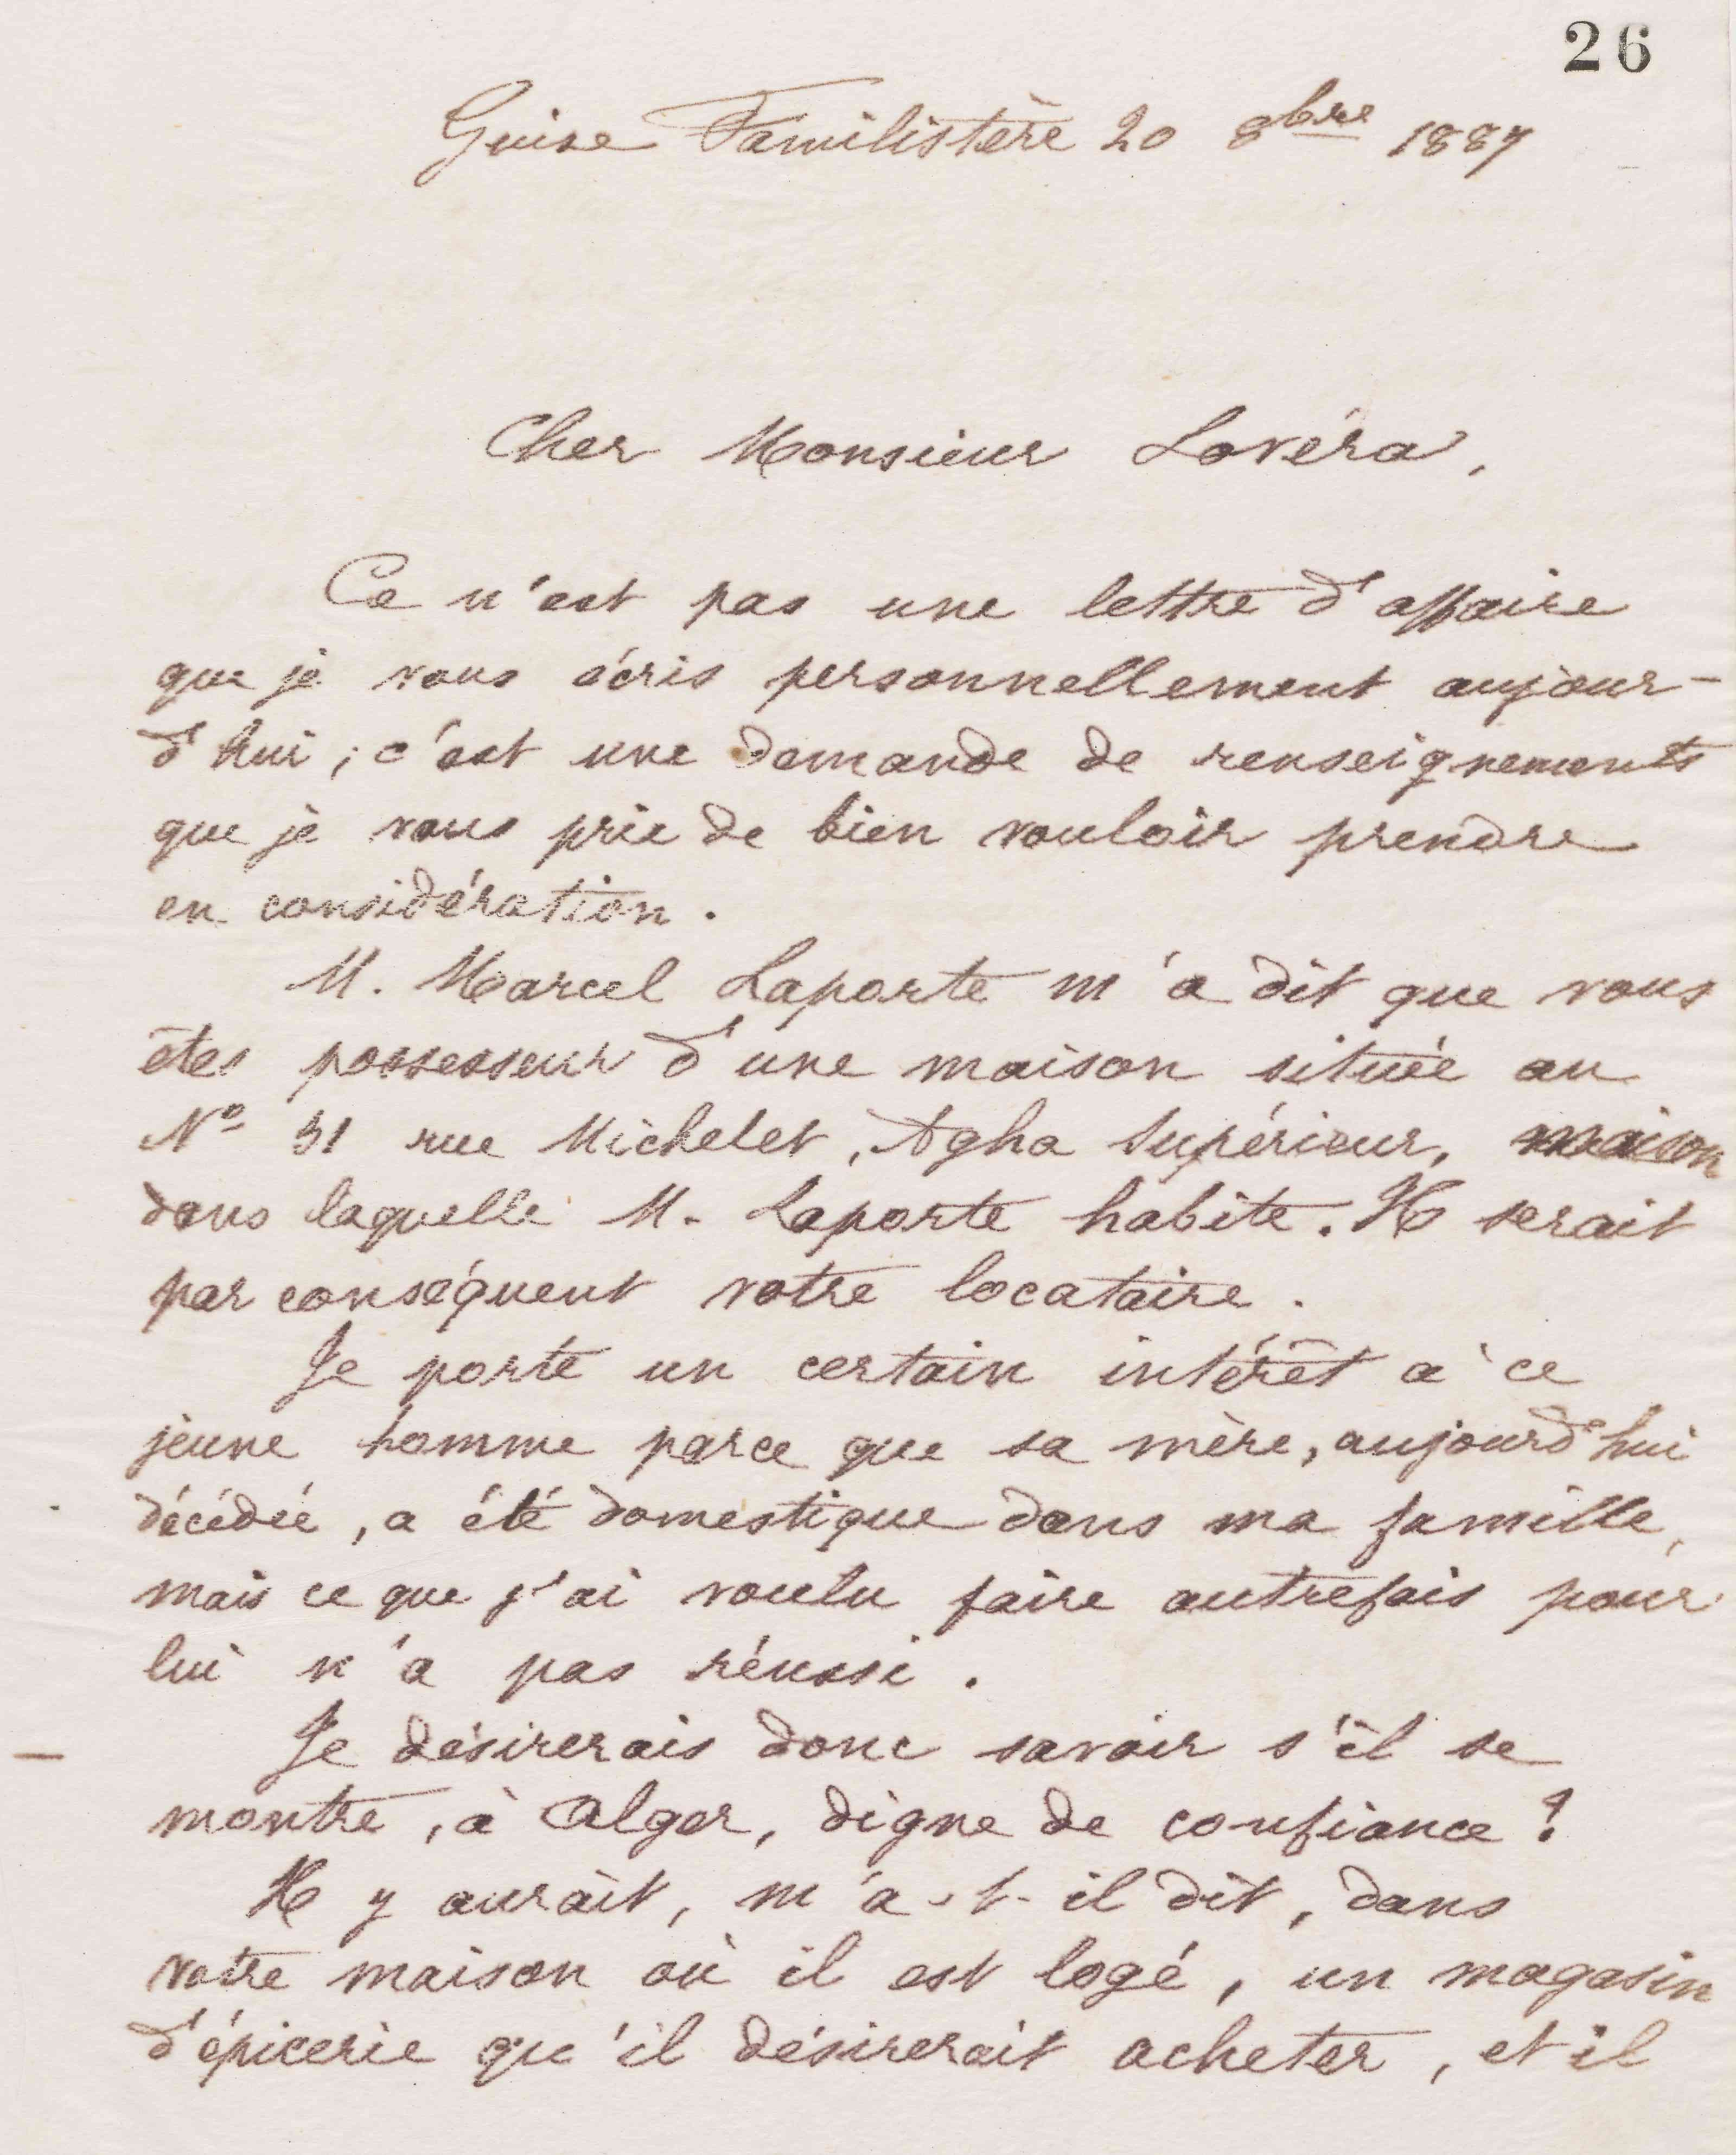 26
Guise Familistère 20 8bre 1887
Cher Monsieur Lovéra,
Ce n'est pas une lettre d'affaire
que je vous écris personnellement aujour-
d'hui ; c'est une demande de renseignements
que je vous prie de bien vouloir prendre
en considération.
M. Marcel Laporte m'a dit que vous
êtes possesseur d'une maison située au
No 31 rue Michelet, Agha Supérieur, maison
dans laquelle M. Laporte habite. Il serait
par conséquent votre locataire.
Je porte un certain intérêt à ce
jeune homme parce que sa mère, aujourd'hui
décédée, a été domestique dans ma famille,
mais ce que j'ai voulu faire autrefois pour
lui n'a pas réussi.
Je désirerais donc savoir s'il se
montre, à Alger, digne de confiance ?
Il y aurait, m'a-t-il dit, dans
votre maison où il est logé, un magasin
d'épicerie qu'il désirerait acheter, et il